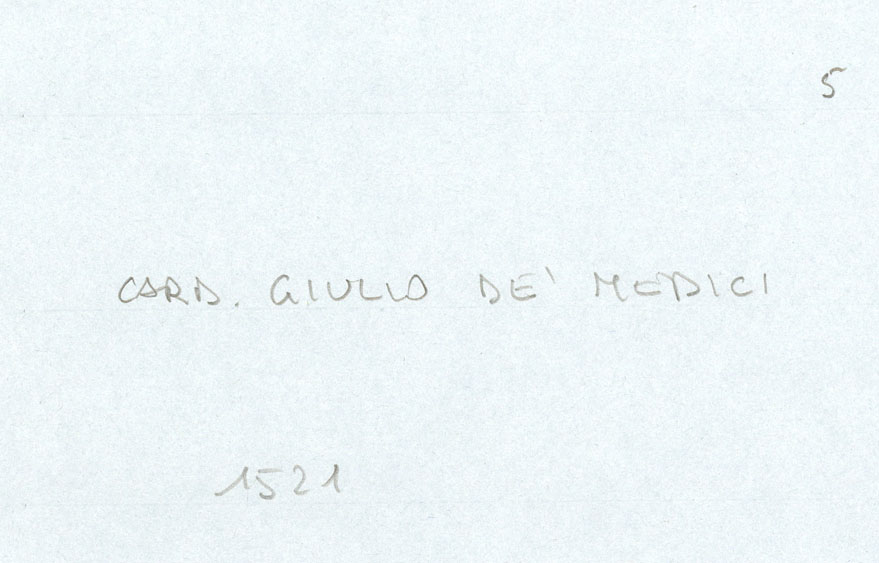 5
CARD. GIULIO DE' MEDICI
1521